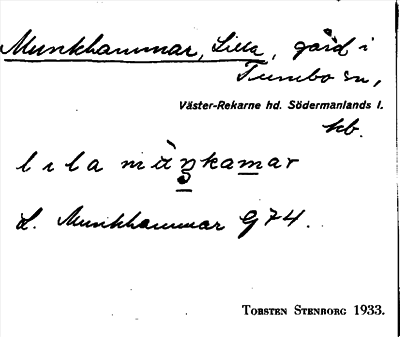 Munkhammar, Lilla, gård i
Tumbo sn,
Väster-Rekarne hd. Södermanlands l.
hb.
lıla mùŋkamar
L. Munkhammar G74.
TORSTEN STENBORG 1933.